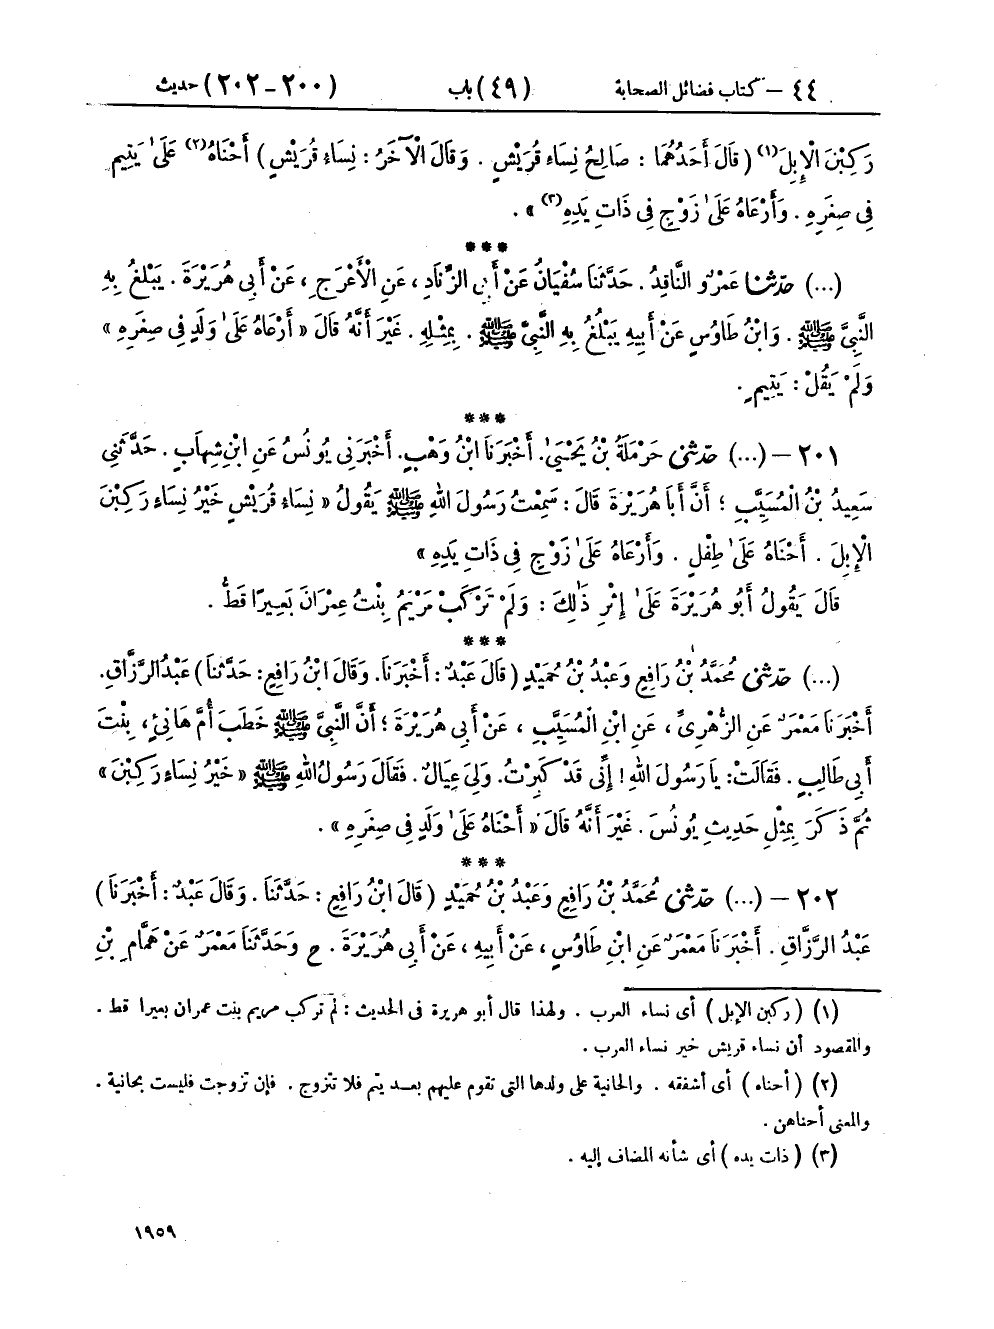 ٤٤ - كتاب فضائل الصحابة (٤٩) باب (٢٠٠-٢٠٢) حديث
رَكِبْنَ الْإِبِلَ(١) ( قَالَ أَحَدُهُمَا : صَالِحُ نِسَاءِ قُرَيْشٍ . وَقَالَ الْآخَرُ : نِسَاءِ قُرَيْشٍ ) أَحْنَاهُ(٢) عَلَىٰ يَتِيمٍ
فِي صِغَرِهِ . وَأَرْعَاهُ عَلَىٰ زَوْجٍ فِي ذَاتِ يَدِهِ(٣) » .
***
(...) حدّثنا عَمْرٌو النَّاقِدُ . حَدَّثَنَا سُفْيَانُ عَنْ أَبِي الزِّنَادِ ، عَنِ الْأَعْرَجِ ، عَنْ أَبِي هُرَيْرَةَ . يَبْلُغُ بِهِ
النَّبِيَّ ﷺ . وَابْنُ طَاوُسٍ عَنْ أَبِيهِ يَبْلُغُ بِهِ النَّبِيَّ ﷺ . بِمِثْلِهِ . غَيْرَ أَنَّهُ قَالَ « أَرْعَاهُ عَلَىٰ وَلَدٍ فِي صِغَرِهِ »
وَلَمْ يَقُلْ : يَتِيمٍ .
***
٢٠١ - (...) حدّثني حَرْمَلَةُ بْنُ يَحْيَىٰ. أَخْبَرَنَا ابْنُ وَهْبٍ. أَخْبَرَنِي يُونُسُ عَنِ ابْنِ شِهَابٍ . حَدَّثَنِي
سَعِيدُ بْنُ الْمُسَيَّبِ ؛ أَنَّ أَبَا هُرَيْرَةَ قَالَ : سَمِعْتُ رَسُولَ اللهِ ﷺ يَقُولُ « نِسَاءُ قُرَيْشٍ خَيْرُ نِسَاءٍ رَكِبْنَ
الْإِبِلَ . أَحْنَاهُ عَلَىٰ طِفْلٍ . وَأَرْعَاهُ عَلَىٰ زَوْجٍ فِي ذَاتِ يَدِهِ »
قَالَ يَقُولُ أَبُو هُرَيْرَةَ عَلَىٰ إِثْرِ ذَٰلِكَ : وَلَمْ تَرْكَبْ مَرْيَمُ بِنْتُ عِمْرَانَ بَعِيرًا قَطُّ .
***
(...) حدّثني مُحَمَّدُ بْنُ رَافِعٍ وَعَبْدُ بْنُ حُمَيْدٍ ( قَالَ عَبْدٌ : أَخْبَرَنَا. وَقَالَ ابْنُ رَافِعٍ: حَدَّثَنَا ) عَبْدُ الرَّزَّاقِ.
أَخْبَرَنَا مَعْمَرٌ عَنِ الزُّهْرِيِّ ، عَنِ ابْنِ الْمُسَيَّبِ ، عَنْ أَبِي هُرَيْرَةَ ؛ أَنَّ النَّبِيَّ ﷺ خَطَبَ أُمَّ هَانِئٍ ، بِنْتَ
أَبِي طَالِبٍ . فَقَالَتْ: يَا رَسُولَ اللهِ ! إِنِّي قَدْ كَبِرْتُ. وَلِيَ عِيَالٌ . فَقَالَ رَسُولُ اللهِ ﷺ « خَيْرُ نِسَاءٍ رَكِبْنَ »
ثُمَّ ذَكَرَ بِمِثْلِ حَدِيثِ يُونُسَ . غَيْرَ أَنَّهُ قَالَ « أَحْنَاهُ عَلَىٰ وَلَدٍ فِي صِغَرِهِ » .
***
٢٠٢ - (...) حدّثني مُحَمَّدُ بْنُ رَافِعٍ وَعَبْدُ بْنُ حُمَيْدٍ ( قَالَ ابْنُ رَافِعٍ : حَدَّثَنَا . وَقَالَ عَبْدٌ : أَخْبَرَنَا )
عَبْدُ الرَّزَّاقِ . أَخْبَرَنَا مَعْمَرٌ عَنِ ابْنِ طَاوُسٍ ، عَنْ أَبِيهِ ، عَنْ أَبِي هُرَيْرَةَ . ح وَحَدَّثَنَا مَعْمَرٌ عَنْ هَمَّامِ بْنِ
(١) ( ركبن الإبل ) أى نساء العرب . ولهذا قال أبو هريرة فى الحديث : لم تركب مريم بنت عمران بعيرا قط .
والمقصود أن نساء قريش خير نساء العرب .
(٢) ( أحناه ) أى أشفقه . والحانية على ولدها التى تقوم عليهم بعد يتم فلا تتزوج . فإن تزوجت فليست بحانية .
والمعنى أحناهن .
(٣) ( ذات يده ) أى شأنه المضاف إليه .
١٩٥٩